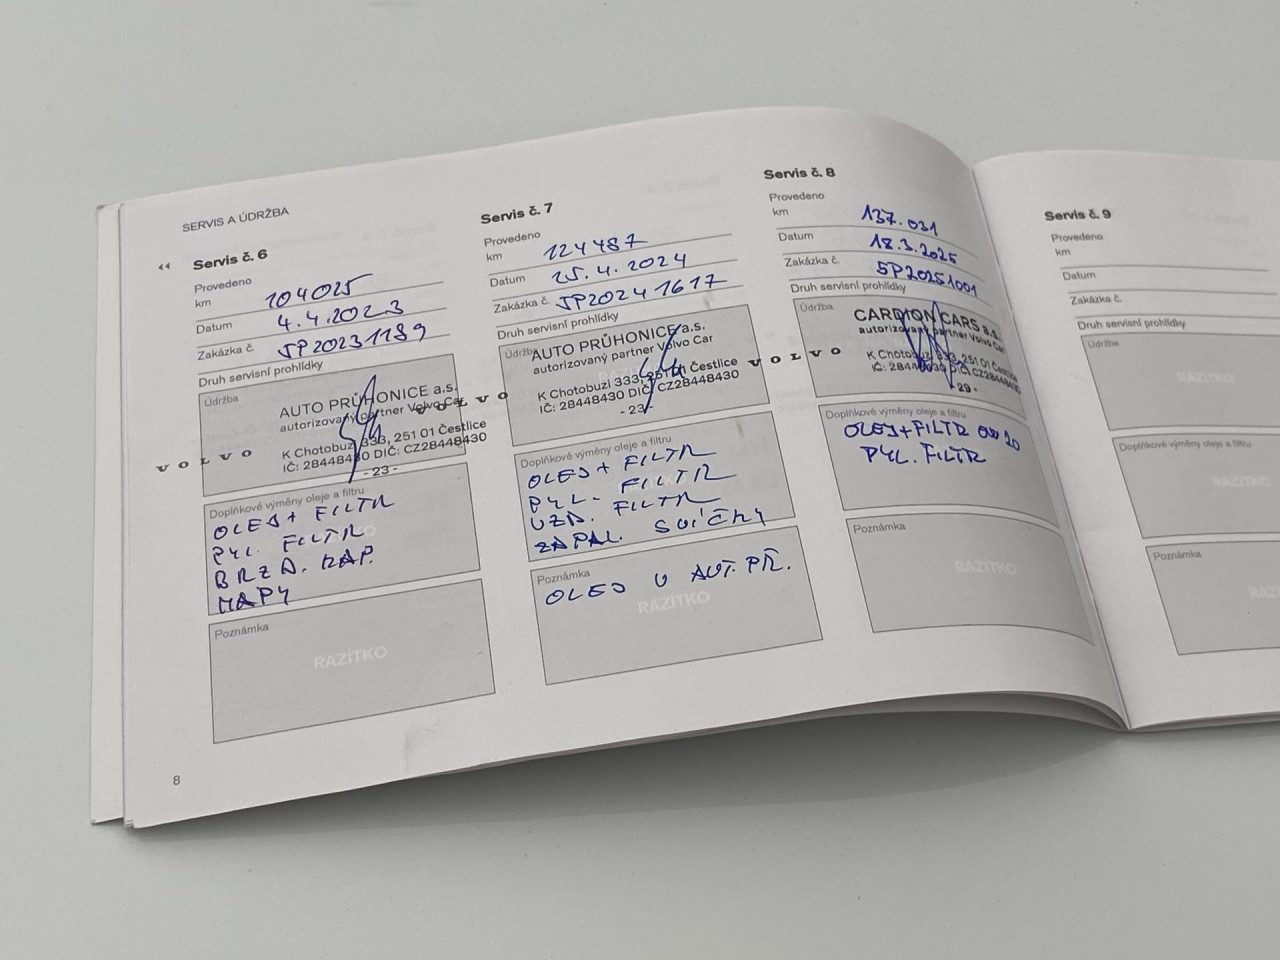 SERVIS A ÚDRŽBA
Servis č. 6
Provedeno
km 104025
Datum 4.4.2023
Zakázka č. SP20231189
Druh servisní prohlídky
Údržba
AUTO PRŮHONICE a.s.
autorizovaný partner Volvo Car
K Chotobuzi 333, 251 01 Čestlice
IČ: 28448430 DIČ: CZ28448430
- 23 -
VOLVO
Doplňkové výměny oleje a filtru
OLEJ + FILTR
PYL. FILTR
BRZD. KAP.
MAPY
Poznámka
RAZÍTKO
8
Servis č. 7
Provedeno
km 124487
Datum 25.4.2024
Zakázka č. SP20241617
Druh servisní prohlídky
Údržba
AUTO PRŮHONICE a.s.
autorizovaný partner Volvo Car
K Chotobuzi 333, 251 01 Čestlice
IČ: 28448430 DIČ: CZ28448430
- 23 -
VOLVO
Doplňkové výměny oleje a filtru
OLEJ + FILTR
PYL. FILTR
VZD. FILTR
ZAPAL. SVÍČKY
Poznámka
OLEJ V AUT. PŘ.
RAZÍTKO
Servis č. 8
Provedeno
km 137.031
Datum 18.3.2025
Zakázka č. SP20251001
Druh servisní prohlídky
Údržba
CARDION CARS a.s.
autorizovaný partner Volvo Car
K Chotobuzi 333, 251 01 Čestlice
IČ: 28448430 DIČ: CZ28448430
- 29 -
VOLVO
Doplňkové výměny oleje a filtru
OLEJ + FILTR 0W20
PYL. FILTR
Poznámka
RAZÍTKO
Servis č. 9
Provedeno
km
Datum
Zakázka č.
Druh servisní prohlídky
Údržba
RAZÍTKO
Doplňkové výměny oleje a filtru
RAZÍTKO
Poznámka